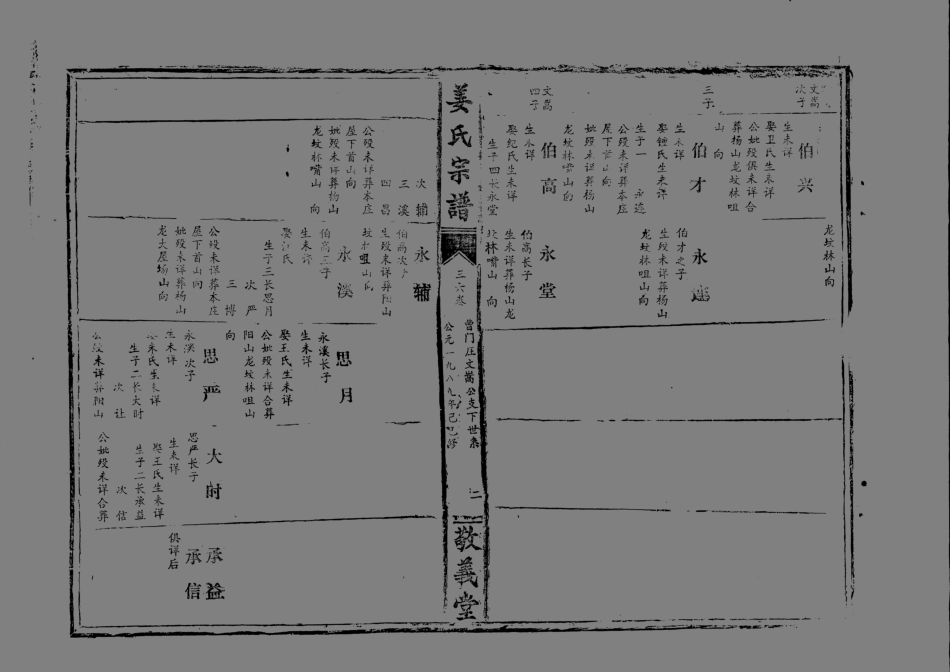 文嵩
次子
伯兴
生未详
娶卫氏生未详
公妣殁俱未详合
葬杨山龙坟林咀
山向
三子
伯才
生未详
娶钟氏生未详
生子一 永连
公殁未详葬本庄
屋下首山向
妣殁未详葬杨山
龙坟林嘴山向
文嵩
四子
伯高
生未详
娶纪氏生未详
生子四长永堂
龙坟林山向
永连
伯才之子
生殁未详葬杨山
龙坟林咀山向
永堂
伯高长子
生未详葬杨山龙
坟林嘴山 向
姜氏宗谱
三六卷
曾门庄文嵩公支下世系
公元一九八九年己巳修
二
敬义堂
次 辅
三 溪
四 昌
公殁未详葬本庄
屋下首山向
妣殁未详葬杨山
龙坟林嘴山 向
永辅
伯高次子
生殁未详葬阳山
永溪
伯高三子
生未详
生子三长思月
次 严
三 博
公殁未详葬本庄
屋下首山向
妣殁未详葬杨山
龙大屋场山向
思月
永溪长子
生未详
娶王氏生未详
公妣殁未详合葬
阳山龙坟林咀山
向
思严
永溪次子
生未详
生子二长大时
次 让
公殁未详葬阳山
大时
思严长子
生未详
娶王氏生未详
生子二长承益
次 信
公妣殁未详合葬
承益
承信
俱详后